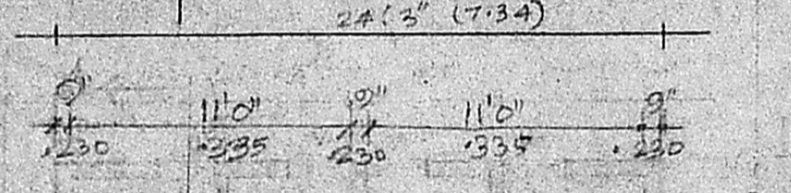 24'3" (7.34)
9" 11'0" 9" 11'0" 9"
.230 .335 .230 .335 .230